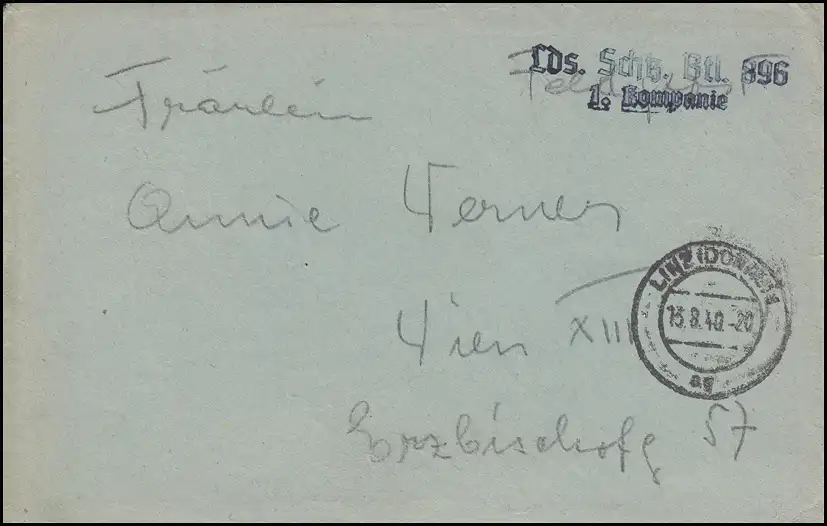 Lds. Schtz. Btl. 896
1. Kompanie
Feldpost
Fräulein
Annie Werner
Wien XIII
Erzbischofg 57
LINZ (DONAU) 1
13.8.40.-20
ag